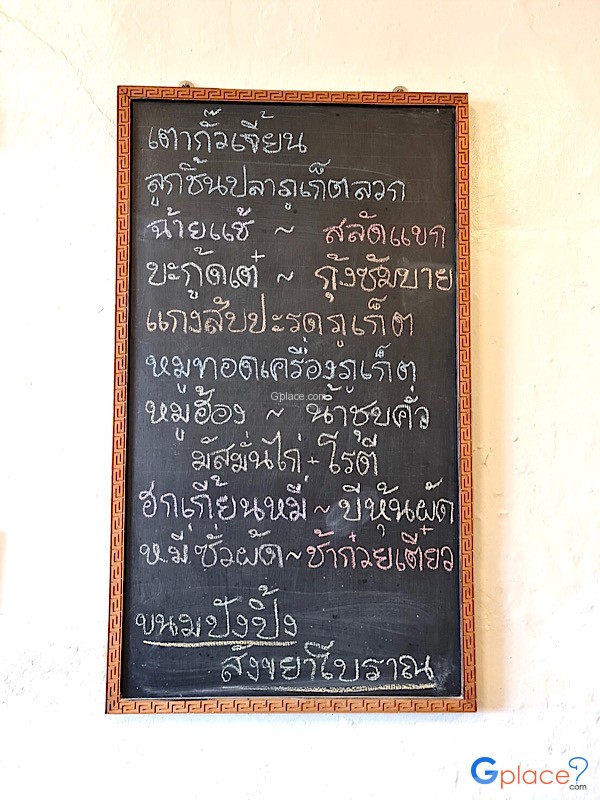 เตากั๊วเจี้ยน
ลูกชิ้นปลาภูเก็ตลวก
ฉ้ายแช้ ~ สลัดแขก
บะกู้ดเต๋ ~ กุ้งซัมบาย
แกงสับปะรดภูเก็ต
หมูทอดเครื่องภูเก็ต
Gplace.com
หมูฮ้อง ~ น้ำชุบคั่ว
มัสมั่นไก่ + โรตี
ฮกเกี้ยนหมี่ ~ บีหุ้นผัด
หมี่ซั่วผัด ~ ช้าก๋วยเตี๋ยว
ขนมปังปิ้ง
สังขยาโบราณ
Gplace?
.com